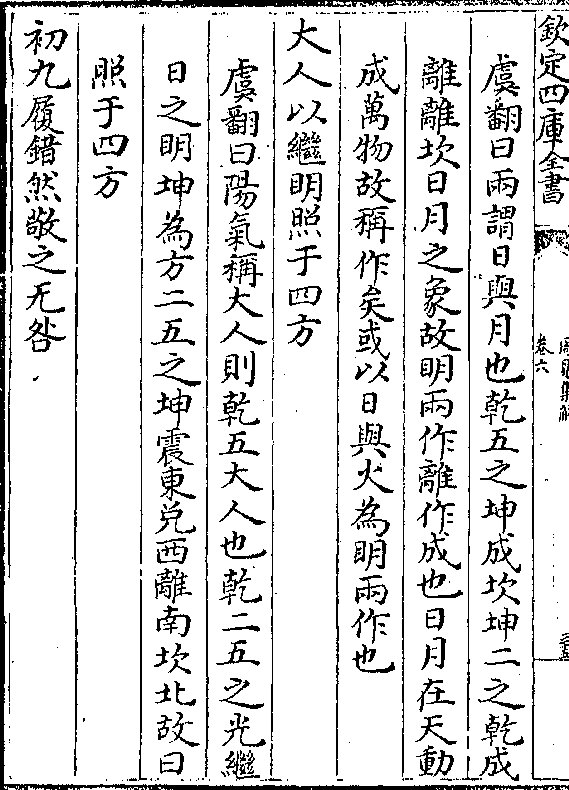 欽定四庫全書
周易集解
卷六
虞翻曰兩謂日與月也乾五之坤成坎坤二之乾成
離離坎日月之象故明兩作離作成也日月在天動
成萬物故稱作矣或以日與火為明兩作也
大人以繼明照于四方
虞翻曰陽氣稱大人則乾五大人也乾二五之光繼
日之明坤為方二五之坤震東兑西離南坎北故曰
照于四方
初九履錯然敬之无咎